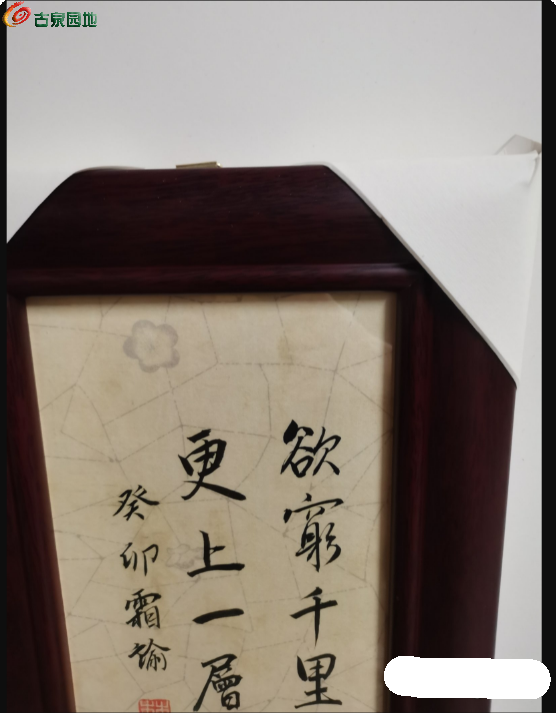 古泉园地
欲窮千里
更上一層
癸卯霜瑜